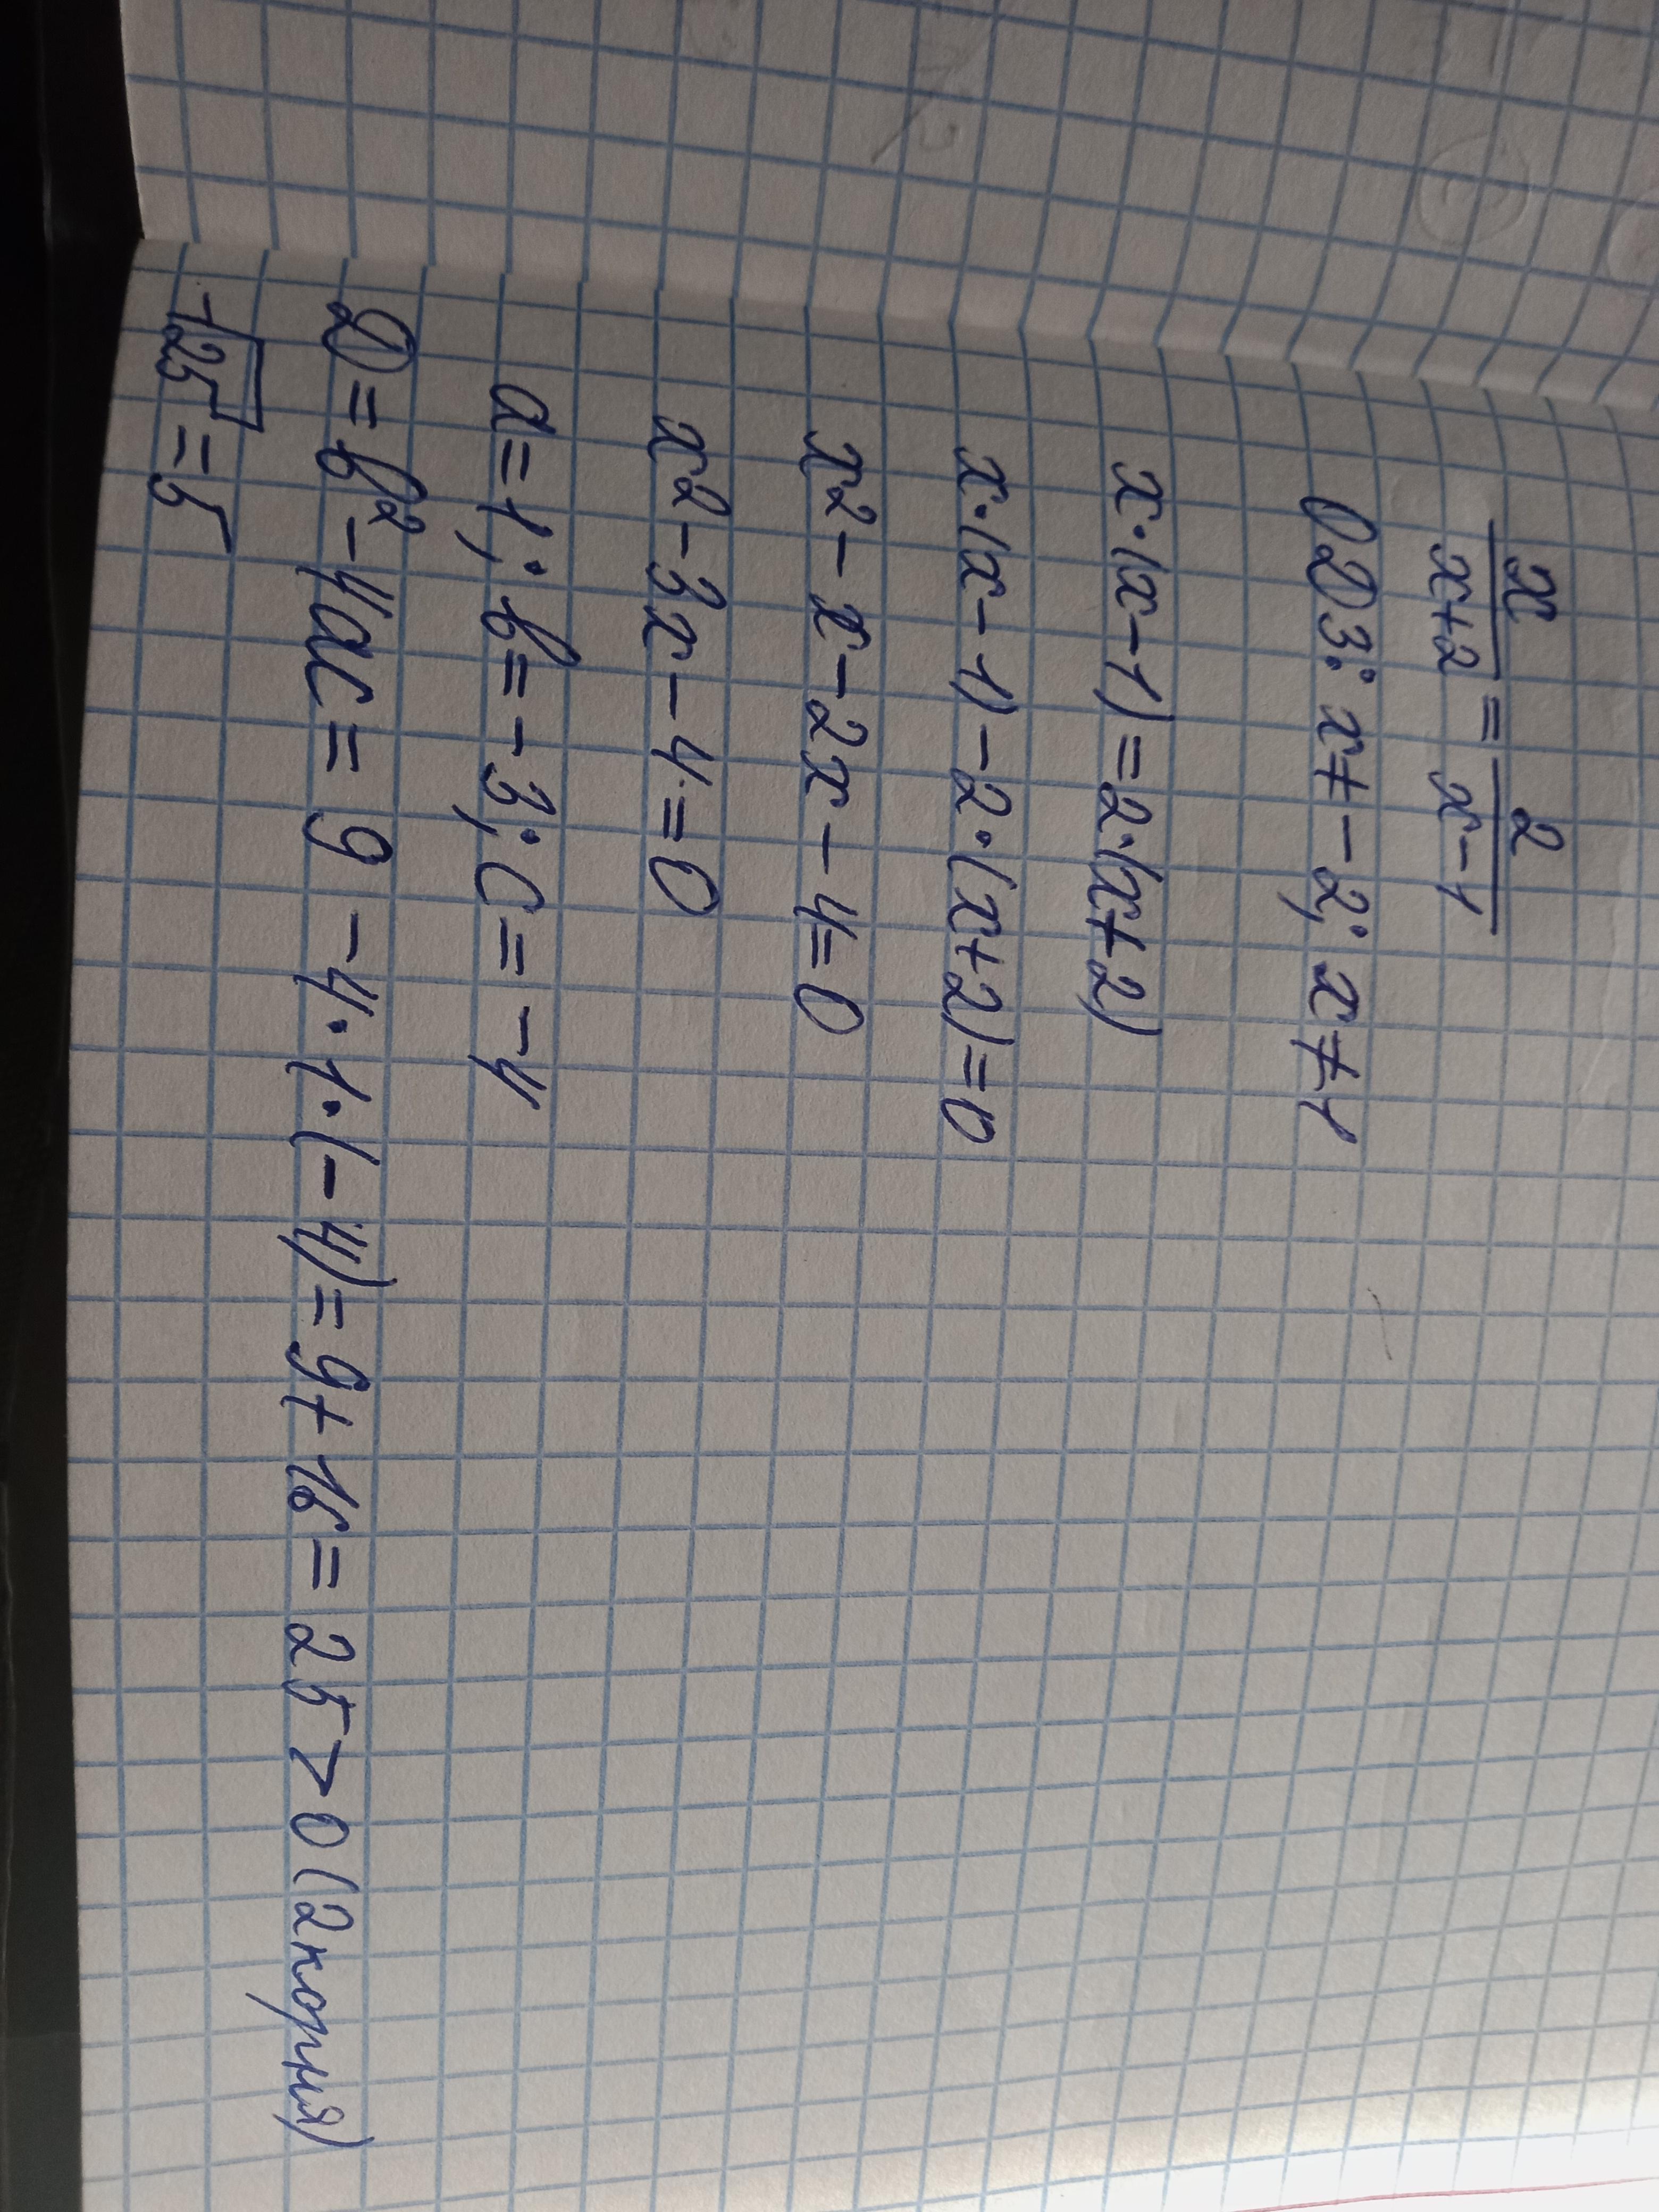 x/(x+2) = 2/(x-1)
ОДЗ: x ≠ -2; x ≠ 1
x·(x-1)=2·(x+2)
x·(x-1)-2·(x+2)=0
x²-x-2x-4=0
x²-3x-4=0
a=1; b=-3; c=-4
D=b²-4ac=9-4·1·(-4)=9+16=25>0 (2 корня)
√25=5